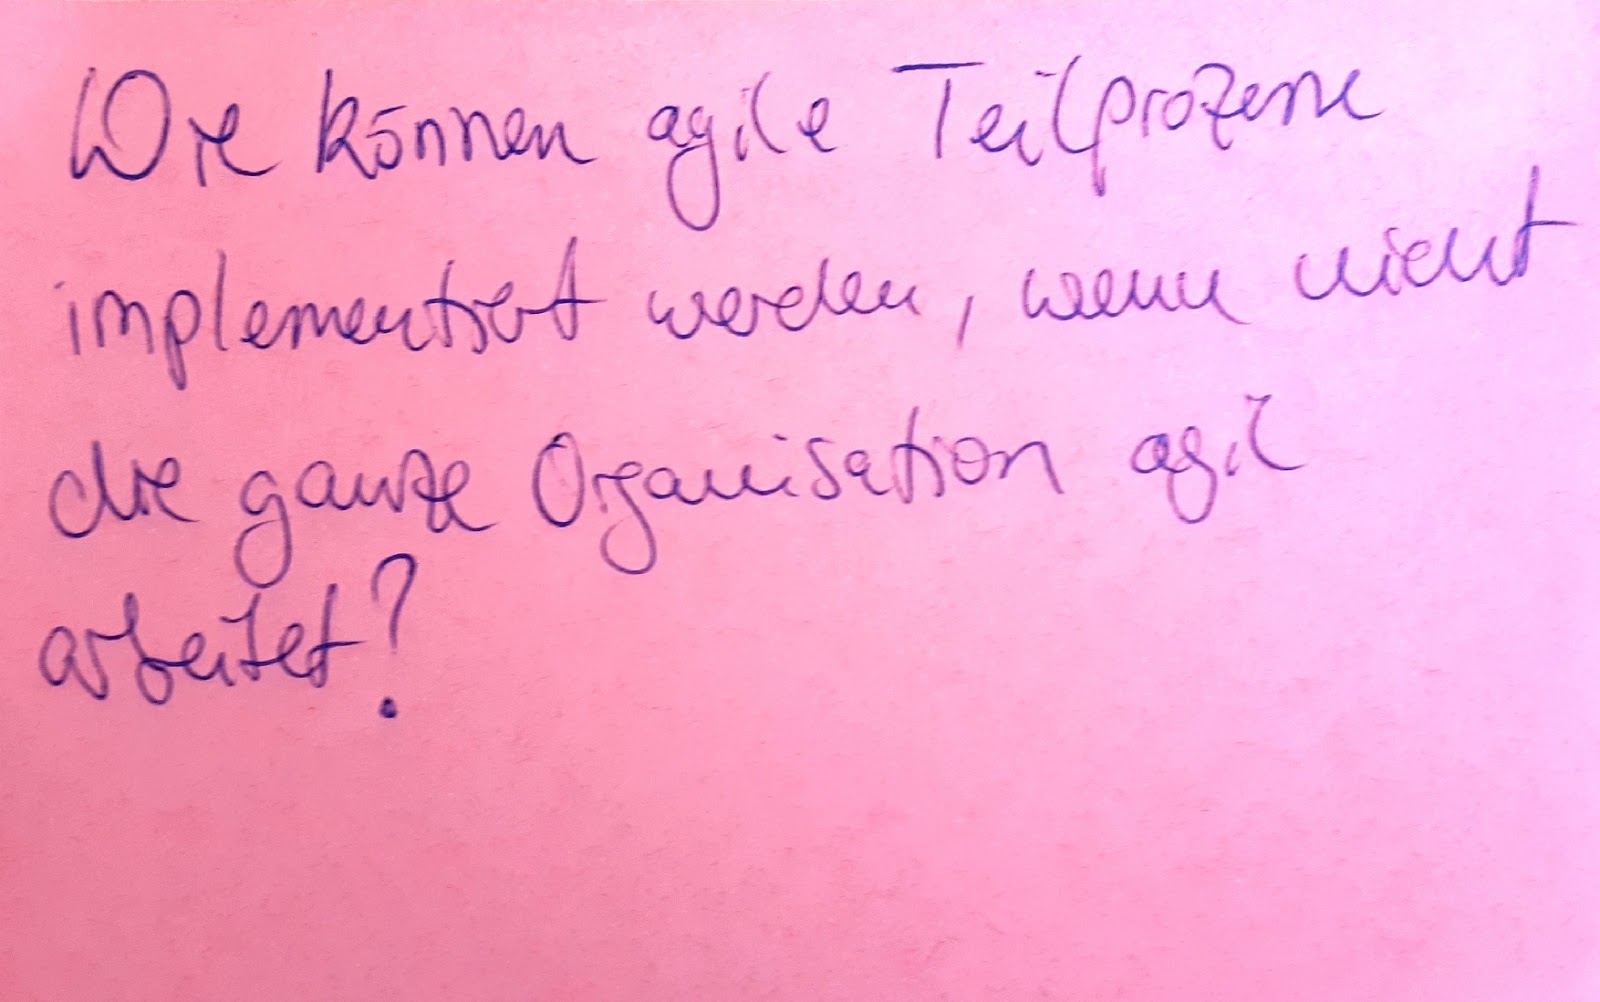 Wie können agile Teilprozesse
implementiert werden, wenn nicht
die ganze Organisation agil
arbeitet?